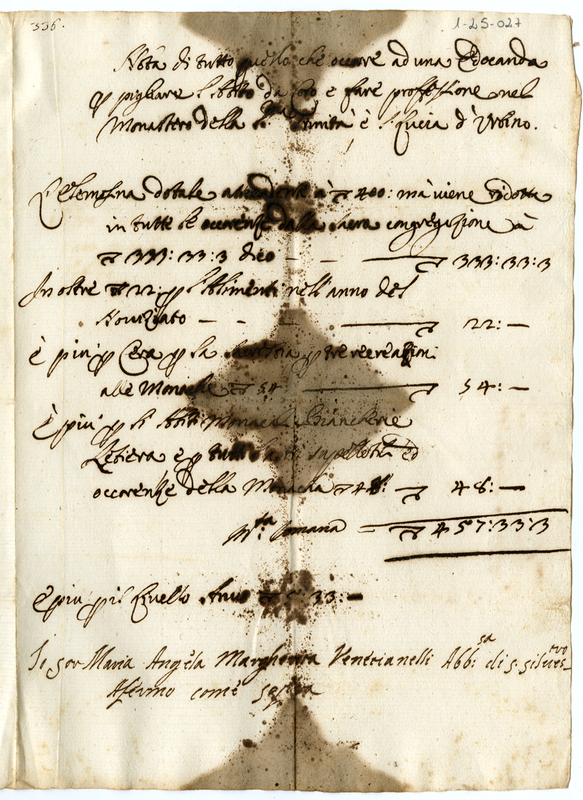 336.
1-25-027
Nota di tutto quello che occore ad una Educanda
p pigliare l'abito da Coro e fare professione nel
Monastero della SS. Trinità è S. Lucia d'Urbino.
L'Elemosina dotale ascendente à ▽ 400: mà viene ridotta
in tutte le occorenze dalla sacra congregazione à
▽ 333: 33: 3 dico — — ▽ 333:33:3
In oltre ▽ 22: p l'Alimenti nell'anno del
Noviziato — — — ▽ 22: —
è più p Cera p la sacristia p tre recreationi
alle Monache ▽ 54 ▽ 54: —
È più p li abiti Monacali Biancherie
Letiera e p tutti li supelletili ed
occorenze della Monacha ▽ 48: ▽ 48: —
Mta Romana = ▽ 457:33:3
È più p il livello Annuo 33: —
Io Sor Maria Angela Margherita Venerianelli Abb:sa di S. Silves_tro
Afermo come sopra